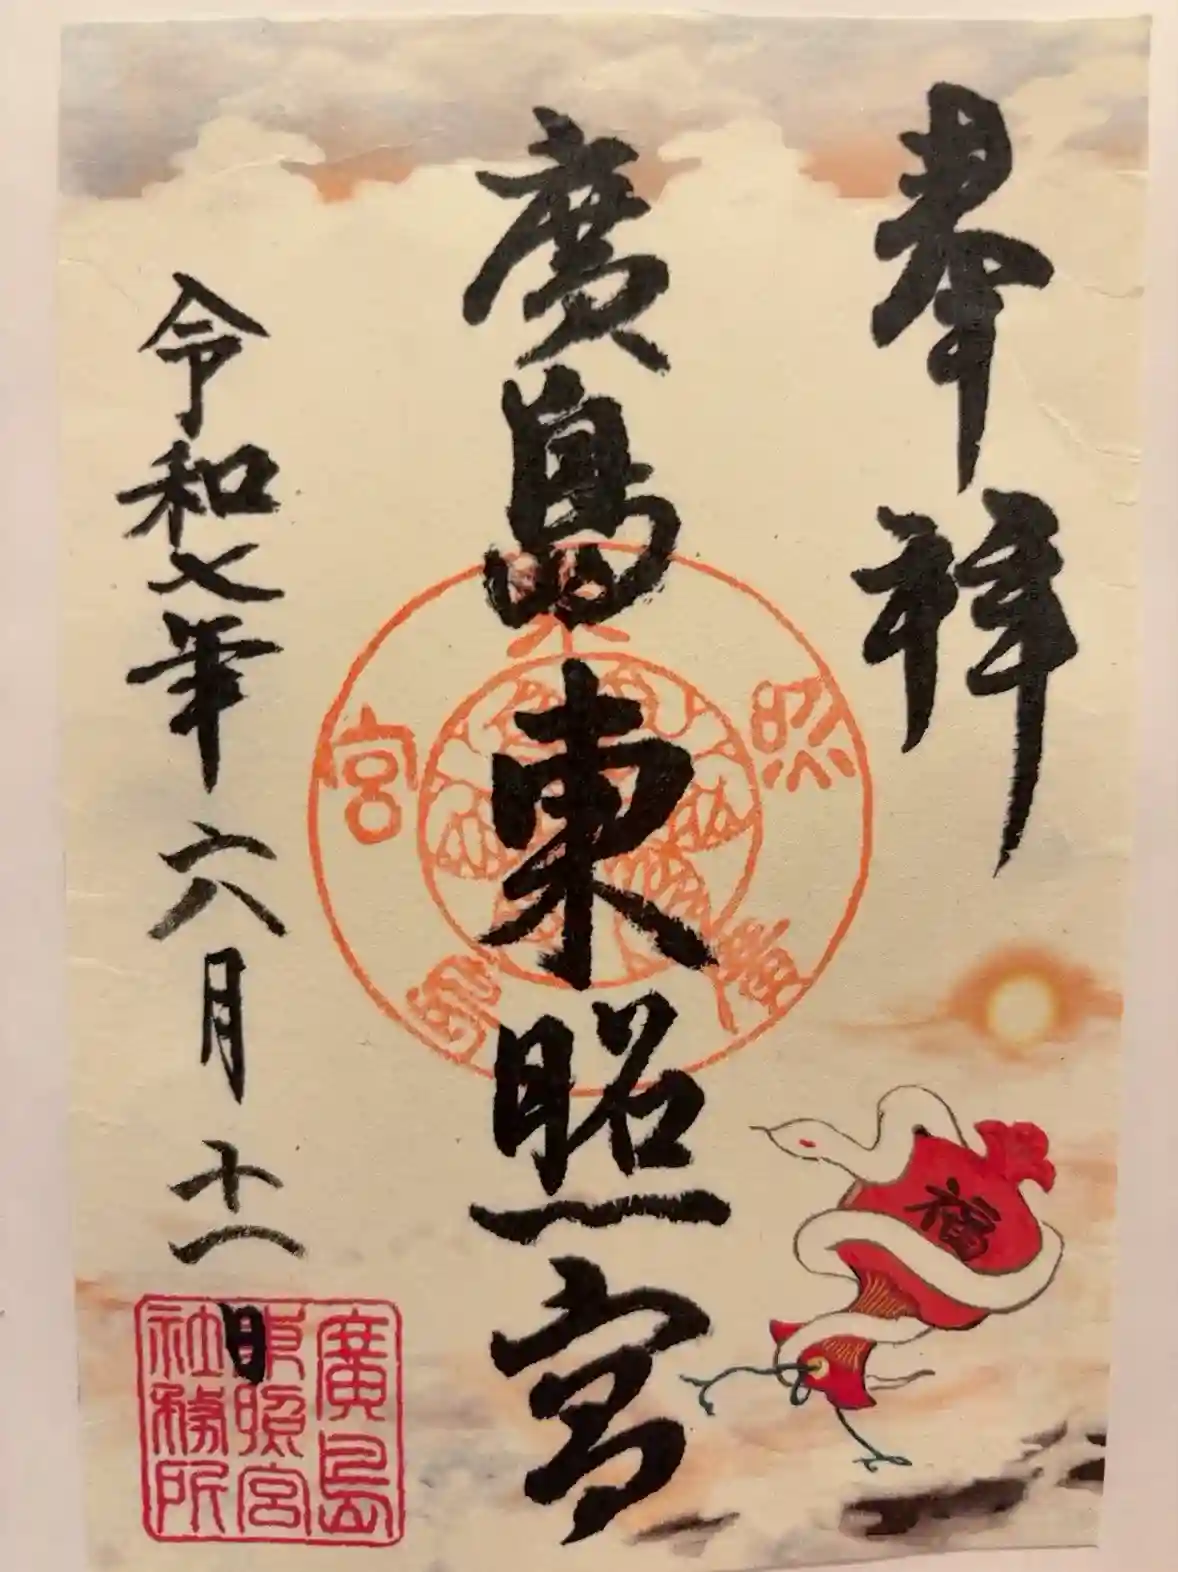 奉拝
廣島東照宮
令和七年六月十一日
廣島東照宮
福
廣島
東照宮
社務所